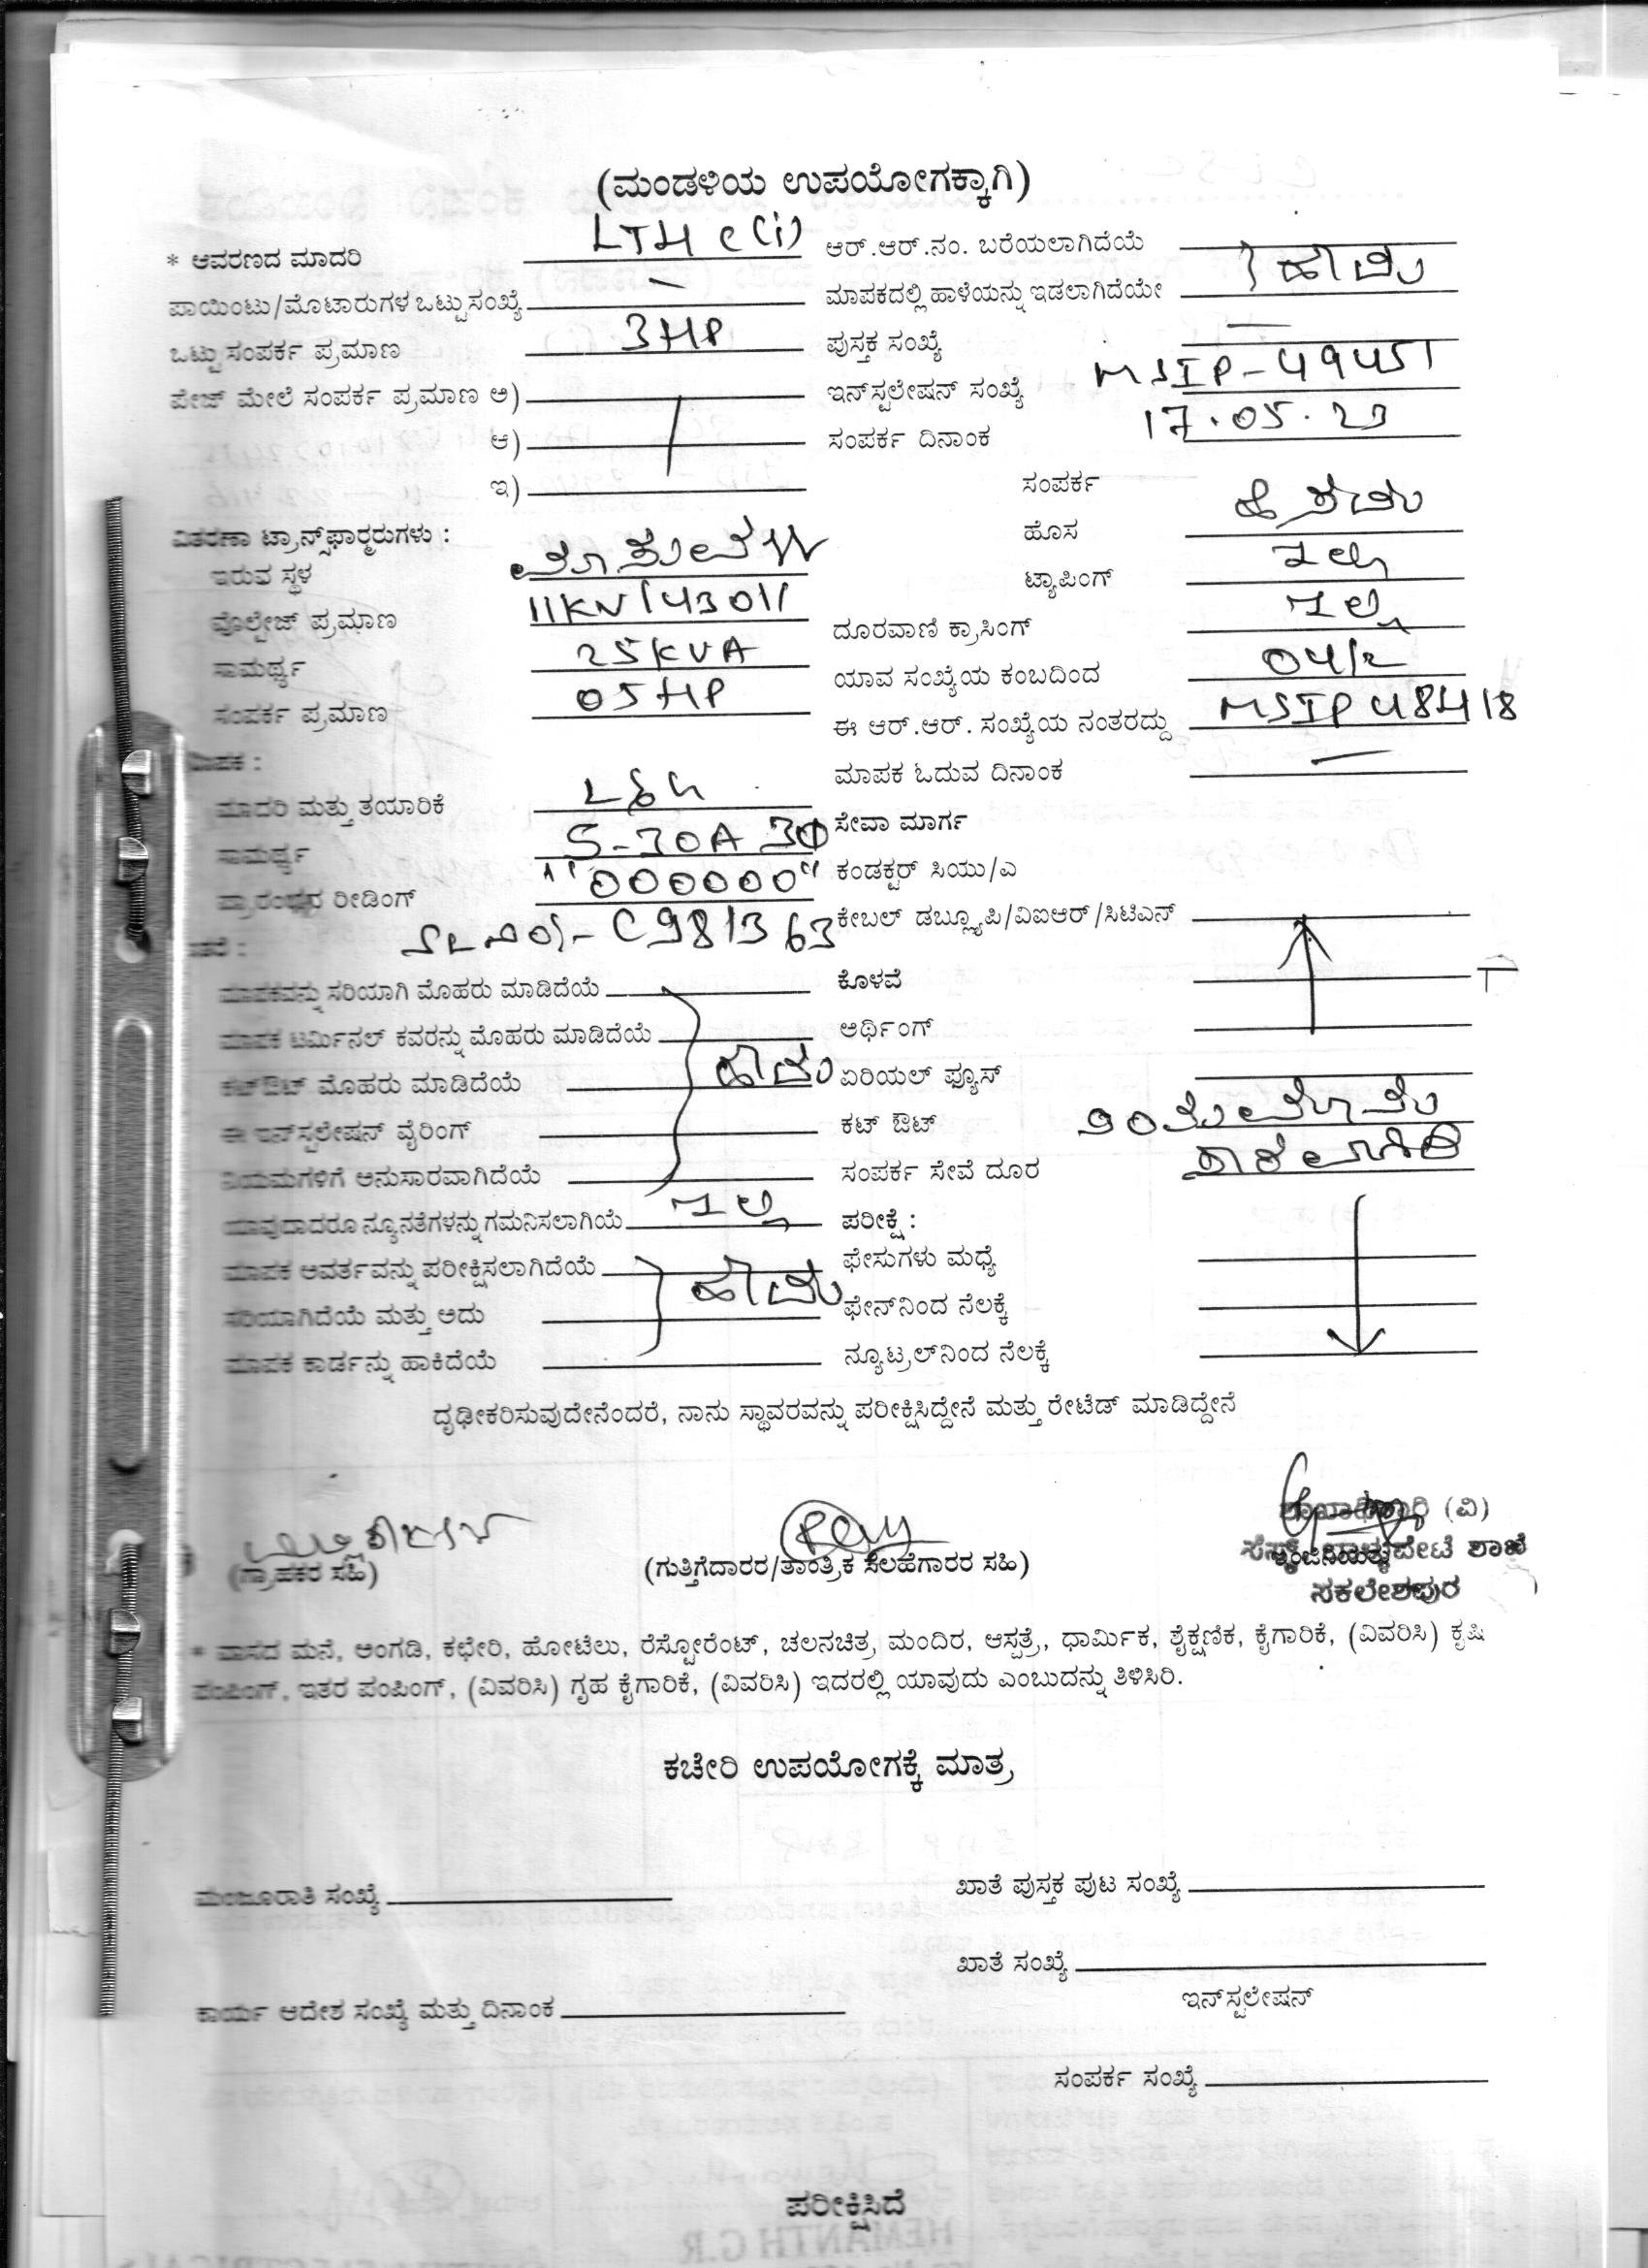 (ಮಂಡಳಿಯ ಉಪಯೋಗಕ್ಕಾಗಿ)
* ಆವರಣದ ಮಾದರಿ LTH c(i) ಆರ್.ಆರ್.ನಂ. ಬರೆಯಲಾಗಿದೆಯೆ
ಪಾಯಿಂಟು/ಮೊಟಾರುಗಳ ಒಟ್ಟು ಸಂಖ್ಯೆ — ಮಾಪಕದಲ್ಲಿ ಹಾಳೆಯನ್ನು ಇಡಲಾಗಿದೆಯೇ ಹೌದು
ಒಟ್ಟು ಸಂಪರ್ಕ ಪ್ರಮಾಣ 3HP ಪುಸ್ತಕ ಸಂಖ್ಯೆ —
ಪೇಜ್ ಮೇಲೆ ಸಂಪರ್ಕ ಪ್ರಮಾಣ ಅ) ಇನ್‌ಸ್ಟಲೇಷನ್ ಸಂಖ್ಯೆ MSIP-49451
ಆ) ಸಂಪರ್ಕ ದಿನಾಂಕ 17.05.23
ಇ) ಸಂಪರ್ಕ
ವಿತರಣಾ ಟ್ರಾನ್ಸ್‌ಫಾರ್‍ಮರುಗಳು : ಹೊಸ
ಇರುವ ಸ್ಥಳ ಟ್ಯಾಪಿಂಗ್ ಇಲ್ಲ
ವೊಲ್ಟೇಜ್ ಪ್ರಮಾಣ 11KV/430V ದೂರವಾಣಿ ಕ್ರಾಸಿಂಗ್ ಇಲ್ಲ
ಸಾಮರ್ಥ್ಯ 25KVA ಯಾವ ಸಂಖ್ಯೆಯ ಕಂಬದಿಂದ 04/2
ಸಂಪರ್ಕ ಪ್ರಮಾಣ 05HP ಈ ಆರ್.ಆರ್. ಸಂಖ್ಯೆಯ ನಂತರದ್ದು MSIP 48418
ಮಾಪಕ : ಮಾಪಕ ಓದುವ ದಿನಾಂಕ —
ಮಾದರಿ ಮತ್ತು ತಯಾರಿಕೆ L&G ಸೇವಾ ಮಾರ್ಗ
ಸಾಮರ್ಥ್ಯ 5-30A 3Φ ಕಂಡಕ್ಟರ್ ಸಿಯು/ಎ
ಪ್ರಾರಂಭದ ರೀಡಿಂಗ್ "000000" ಕೇಬಲ್ ಡಬ್ಲ್ಯೂಪಿ/ವಿಐಆರ್/ಸಿಟಿಎಸ್
SL NO:- C981363
ಮಾಪಕವನ್ನು ಸರಿಯಾಗಿ ಮೊಹರು ಮಾಡಿದೆಯೆ ಕೊಳವೆ
ಮಾಪಕ ಟರ್ಮಿನಲ್ ಕವರನ್ನು ಮೊಹರು ಮಾಡಿದೆಯೆ ಅರ್ಥಿಂಗ್
ಕಟ್‌ಔಟ್ ಮೊಹರು ಮಾಡಿದೆಯೆ ಹೌದು ಏರಿಯಲ್ ಫ್ಯೂಸ್
ಈ ಇನ್‌ಸ್ಟಲೇಷನ್ ವೈರಿಂಗ್ ಕಟ್ ಔಟ್
ನಿಯಮಗಳಿಗೆ ಅನುಸಾರವಾಗಿದೆಯೆ ಸಂಪರ್ಕ ಸೇವೆ ದೂರ
ಯಾವುದಾದರೂ ನ್ಯೂನತೆಗಳನ್ನು ಗಮನಿಸಲಾಗಿಯೆ ಇಲ್ಲ ಪರೀಕ್ಷೆ :
ಮಾಪಕ ಆವರ್ತವನ್ನು ಪರೀಕ್ಷಿಸಲಾಗಿದೆಯೆ ಹೌದು ಫೇಸುಗಳು ಮಧ್ಯೆ
ಸರಿಯಾಗಿದೆಯೆ ಮತ್ತು ಅದು ಫೇಸ್‌ನಿಂದ ನೆಲಕ್ಕೆ
ಮಾಪಕ ಕಾರ್ಡನ್ನು ಹಾಕಿದೆಯೆ ನ್ಯೂಟ್ರಲ್‌ನಿಂದ ನೆಲಕ್ಕೆ
ದೃಢೀಕರಿಸುವುದೇನೆಂದರೆ, ನಾನು ಸ್ಥಾವರವನ್ನು ಪರೀಕ್ಷಿಸಿದ್ದೇನೆ ಮತ್ತು ರೇಟೆಡ್ ಮಾಡಿದ್ದೇನೆ
ಶಾಖಾಧಿಕಾರಿ (ವಿ)
(ಗ್ರಾಹಕರ ಸಹಿ) (ಗುತ್ತಿಗೆದಾರರ/ತಾಂತ್ರಿಕ ಸಲಹೆಗಾರರ ಸಹಿ) ಶಾಖೆ
ಸಕಲೇಶಪುರ
* ವಾಸದ ಮನೆ, ಅಂಗಡಿ, ಕಛೇರಿ, ಹೋಟೆಲು, ರೆಸ್ಟೋರೆಂಟ್, ಚಲನಚಿತ್ರ ಮಂದಿರ, ಆಸ್ಪತ್ರೆ, ಧಾರ್ಮಿಕ, ಶೈಕ್ಷಣಿಕ, ಕೈಗಾರಿಕೆ, (ವಿವರಿಸಿ) ಕೃಷಿ
ಪಂಪಿಂಗ್, ಇತರ ಪಂಪಿಂಗ್, (ವಿವರಿಸಿ) ಗೃಹ ಕೈಗಾರಿಕೆ, (ವಿವರಿಸಿ) ಇದರಲ್ಲಿ ಯಾವುದು ಎಂಬುದನ್ನು ತಿಳಿಸಿರಿ.
ಕಚೇರಿ ಉಪಯೋಗಕ್ಕೆ ಮಾತ್ರ
ಮಂಜೂರಾತಿ ಸಂಖ್ಯೆ ಖಾತೆ ಪುಸ್ತಕ ಪುಟ ಸಂಖ್ಯೆ
ಖಾತೆ ಸಂಖ್ಯೆ
ಕಾರ್ಯ ಆದೇಶ ಸಂಖ್ಯೆ ಮತ್ತು ದಿನಾಂಕ ಇನ್‌ಸ್ಟಲೇಷನ್
ಸಂಪರ್ಕ ಸಂಖ್ಯೆ
ಪರೀಕ್ಷಿಸಿದೆ